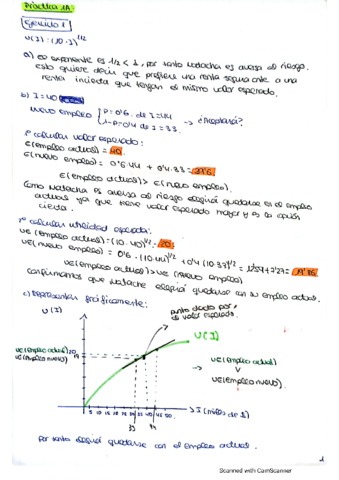 Práctica 1A
Ejercicio 1
U(I) = (10·I)^1/2
a) es exponente es 1/2 < 1, por tanto Natacha es aversa al riesgo.
esto quiere decir que prefiere una renta segura ante a una
renta incierta que tengan el mismo valor esperado.
b) I = 40
nuevo empleo { p = 0'6 de I = 44
1-p = 0'4 de I = 33. → ¿Aceptará?
1º calcular valor esperado:
E(empleo actual) = 40.
E(nuevo empleo) = 0'6·44 + 0'4·33 = 39'6.
E(empleo actual) > E(nuevo empleo).
Como Natacha es aversa al riesgo elegirá quedarse en el empleo
actual ya que tiene valor esperado mayor y es la opción
cierta.
2º calcular utilidad esperada:
UE(empleo actual) = (10·40)^1/2 = 20.
UE(nuevo empleo) = 0'6·(10·44)^1/2 + 0'4(10·33)^1/2 =
UE(empleo actual) > UE(nuevo empleo)
Confirmamos que Natacha elegirá quedarse con su empleo actual.
c) Representar gráficamente:
U(I)
punto dado por
el valor esperado.
U(I)
UE(empleo actual) 20
UE(empleo nuevo) 19
→ UE(empleo actual)
V
UE(empleo nuevo).
5 10 15 20 25 30 35 40 45 50
I (miles de $)
33 44
Por tanto elegirá quedarse con el empleo actual.
1
Scanned with CamScanner